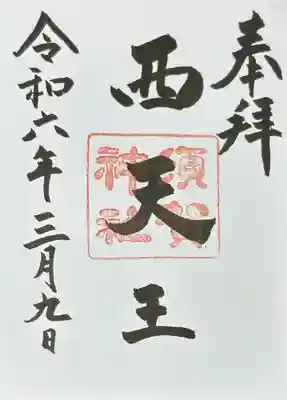 奉拝
西天王
須賀神社
令和六年三月九日